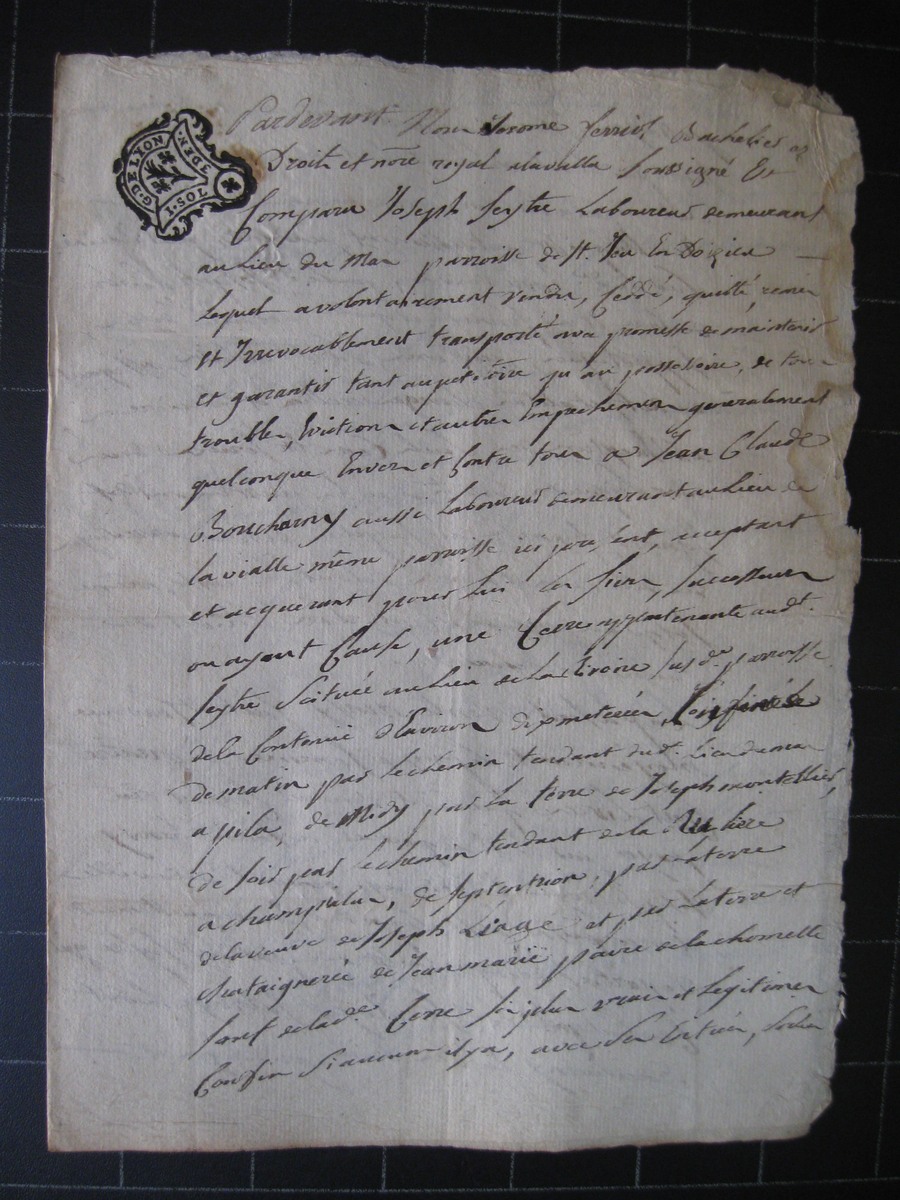 G. DE LYON 3 DEN.
1. SOL
Pardevant Nous Jerome ferriol Bachelier es
Droits et nore royal a lavalla soussigné Est
Comparu Joseph seytre Laboureur demeurant
au Lieu du Mas parroisse de St. Jeu En Doizieu
Lequel a volontairement vendu, Ceddé, quitté, remis
Et Irrevocablement transporté avec promesse de maintenir
et garantir tant au petitoire qu'au possessoire, de tous
troubles, Evictions et autres Empechemens generalement
quelconque Envers et Contre tous a Jean Claude
Boucharny aussi Laboureur demeurant au Lieu de
la vialle même parroisse ici present, acceptant
et acquerant pour lui les siens, successeurs
ou ayant Cause, une Terre appartenante audt.
seytre scituée au Lieu de la susde. parroisse
de la Contenue d'Environ dix meterées,
de matin par le chemin tendant dudt. Lieu du mas
a pila, de Midy par La terre de Joseph montellier,
de soir par le chemin tendant de la
a champ, de septentrion, par la terre
de la veuve de Joseph Liage et par La terre et
chataigneré de Jean marie paire de la chomette
sauf de lade. Terre ses plus vrais et Legitimes
Confins si aucuns il y a, avec ses Entrées, sorties